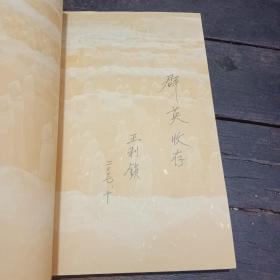 群英收存
王利锁
二〇〇七、十